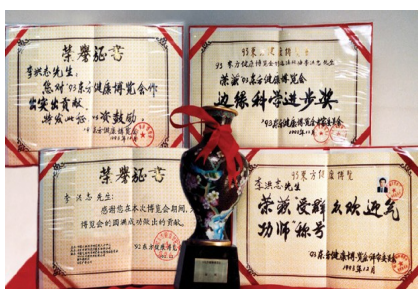 荣誉证书
李洪志先生:
您对'93东方健康博览会作
出突出贡献,
特发此证 以资鼓励。
'93东方健康博览会
1993年12月
荣获'93东方健康博览会
边缘科学进步奖
'93东方健康博览会评审委员会
1993年12月
荣誉证书
李洪志先生:
感谢您在本次博览会期间,为
博览会的圆满成功做出的贡献。
93东方健康博览
李洪志先生
荣获受群众欢迎气
功师称号
93东方健康博览会评审委员会
1993年12月